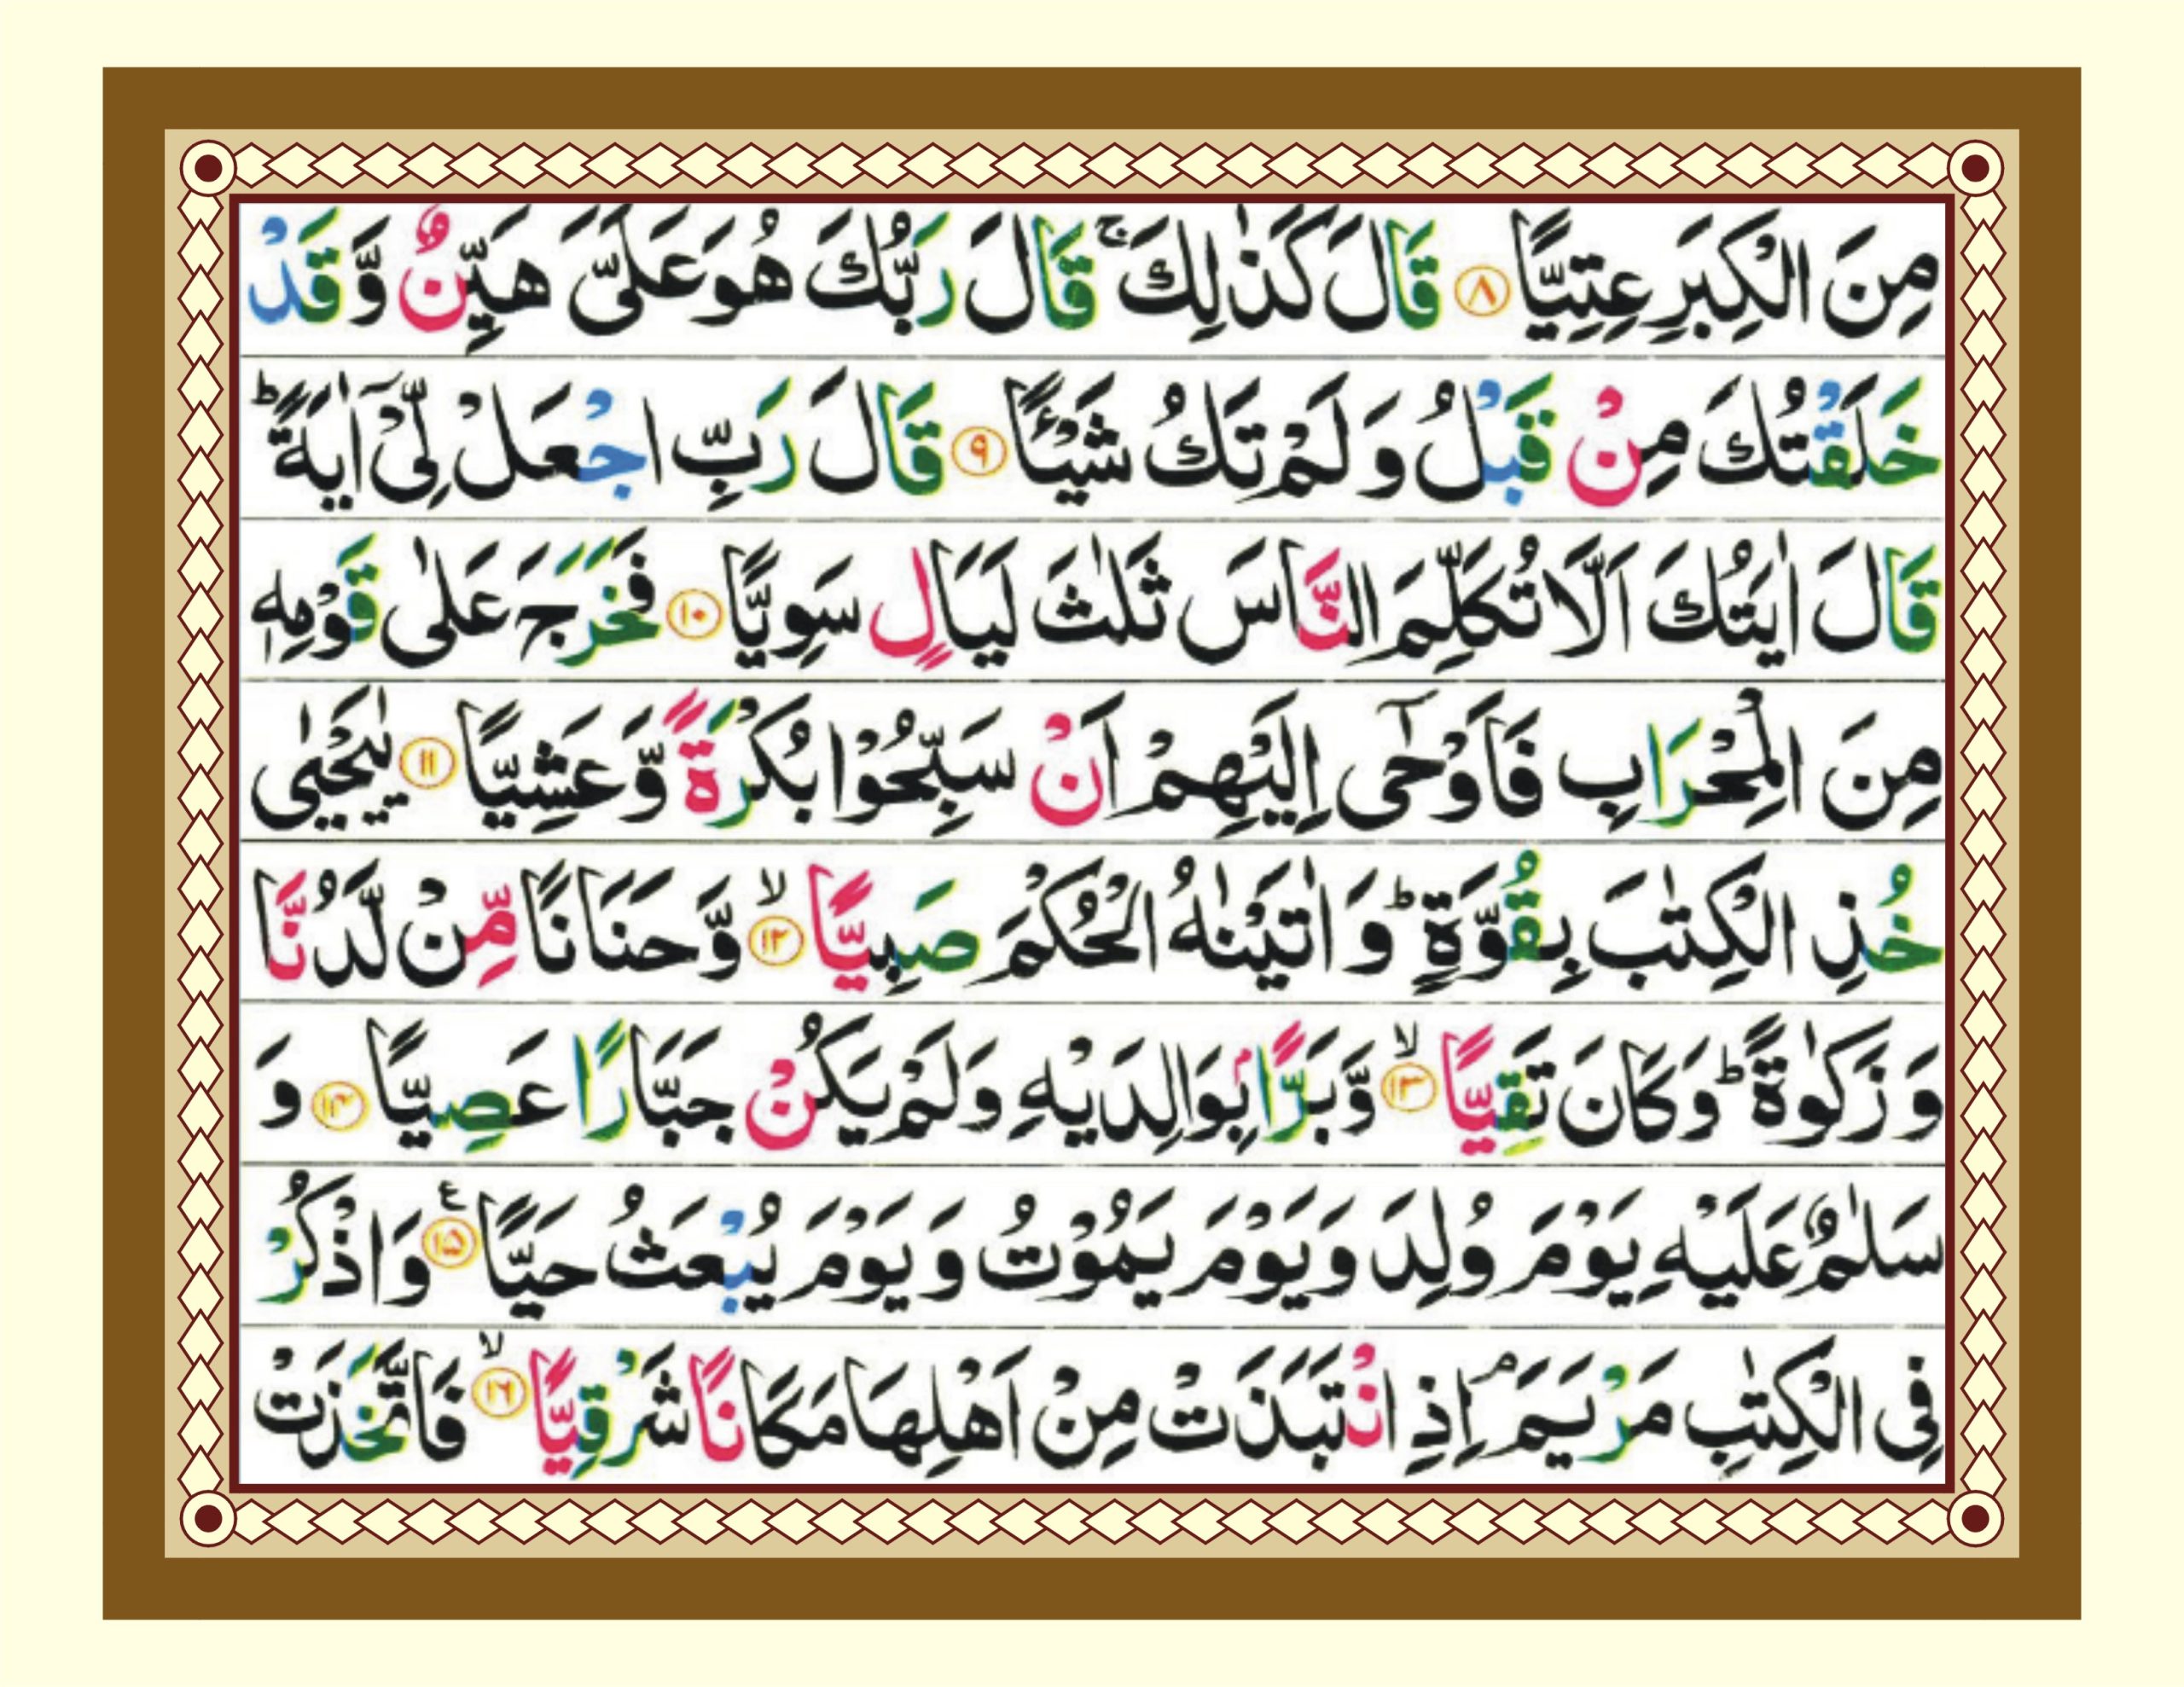 مِنَ الْكِبَرِ عِتِيًّا ۝٨ قَالَ كَذٰلِكَ ۚ قَالَ رَبُّكَ هُوَ عَلَیَّ هَیِّنٌ وَّ قَدْ
خَلَقْتُكَ مِنْ قَبْلُ وَ لَمْ تَكُ شَیْـًٔا ۝٩ قَالَ رَبِّ اجْعَلْ لِّیْۤ اٰیَةً ؕ
قَالَ اٰیَتُكَ اَلَّا تُكَلِّمَ النَّاسَ ثَلٰثَ لَیَالٍ سَوِیًّا ۝١٠ فَخَرَجَ عَلٰی قَوْمِهٖ
مِنَ الْمِحْرَابِ فَاَوْحٰۤی اِلَیْهِمْ اَنْ سَبِّحُوْا بُكْرَةً وَّ عَشِیًّا ۝١١ یٰیَحْیٰی
خُذِ الْكِتٰبَ بِقُوَّةٍ ؕ وَ اٰتَیْنٰهُ الْحُكْمَ صَبِیًّا ۝١٢ ۙ وَّ حَنَانًا مِّنْ لَّدُنَّا
وَ زَكٰوةً ؕ وَ كَانَ تَقِیًّا ۝١٣ ۙ وَّ بَرًّۢا بِوَالِدَیْهِ وَ لَمْ یَكُنْ جَبَّارًا عَصِیًّا ۝١٤ وَ
سَلٰمٌ عَلَیْهِ یَوْمَ وُلِدَ وَ یَوْمَ یَمُوْتُ وَ یَوْمَ یُبْعَثُ حَیًّا ۝١٥ ع وَ اذْكُرْ
فِی الْكِتٰبِ مَرْیَمَ ۘ اِذِ انْتَبَذَتْ مِنْ اَهْلِهَا مَكَانًا شَرْقِیًّا ۝١٦ ۙ فَاتَّخَذَتْ